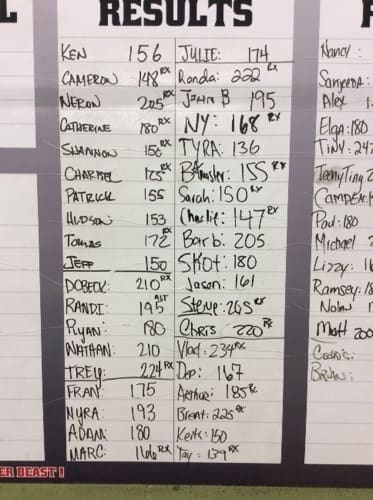 RESULTS
KEN 156
CAMERON 148 RX
NERON 205 RX
CATHERINE 180 RX
SHANNON 156 RX
CHARBEL 175 RX
PATRICK 155
HUDSON 153
Tomas 172 RX
JEFF 150
DOBECK: 210 RX
RANDI: 195
Ryan: 180
NATHAN: 210
TREY: 224 RX
FRAN: 175
MYRA: 193
ADAM: 180
MARC: RX
JULIE: 174
Ronda: 222 RX
John B 195
NY: 168 RX
TYRA: 136
155 RX
Sarah: 150 RX
Charlie: 147 RX
Barb: 205
SKOT: 180
Jason: 161
Steve: 265 RX
Chris 220 RX
Vlad: 234 RX
Dep: 167
Arthur: 185 RX
Brent: 225 RX
Keith: 150
Tay: 139 RX
Nancy:
Alex
Elga: 180
TiNY: 247
TeenyTiny
CAMPBELL
Paul: 180
Michael
Lizzy:
Ramsey:
Nolan
Matt 200
Cedric:
BRIAN:
ER BEAST!